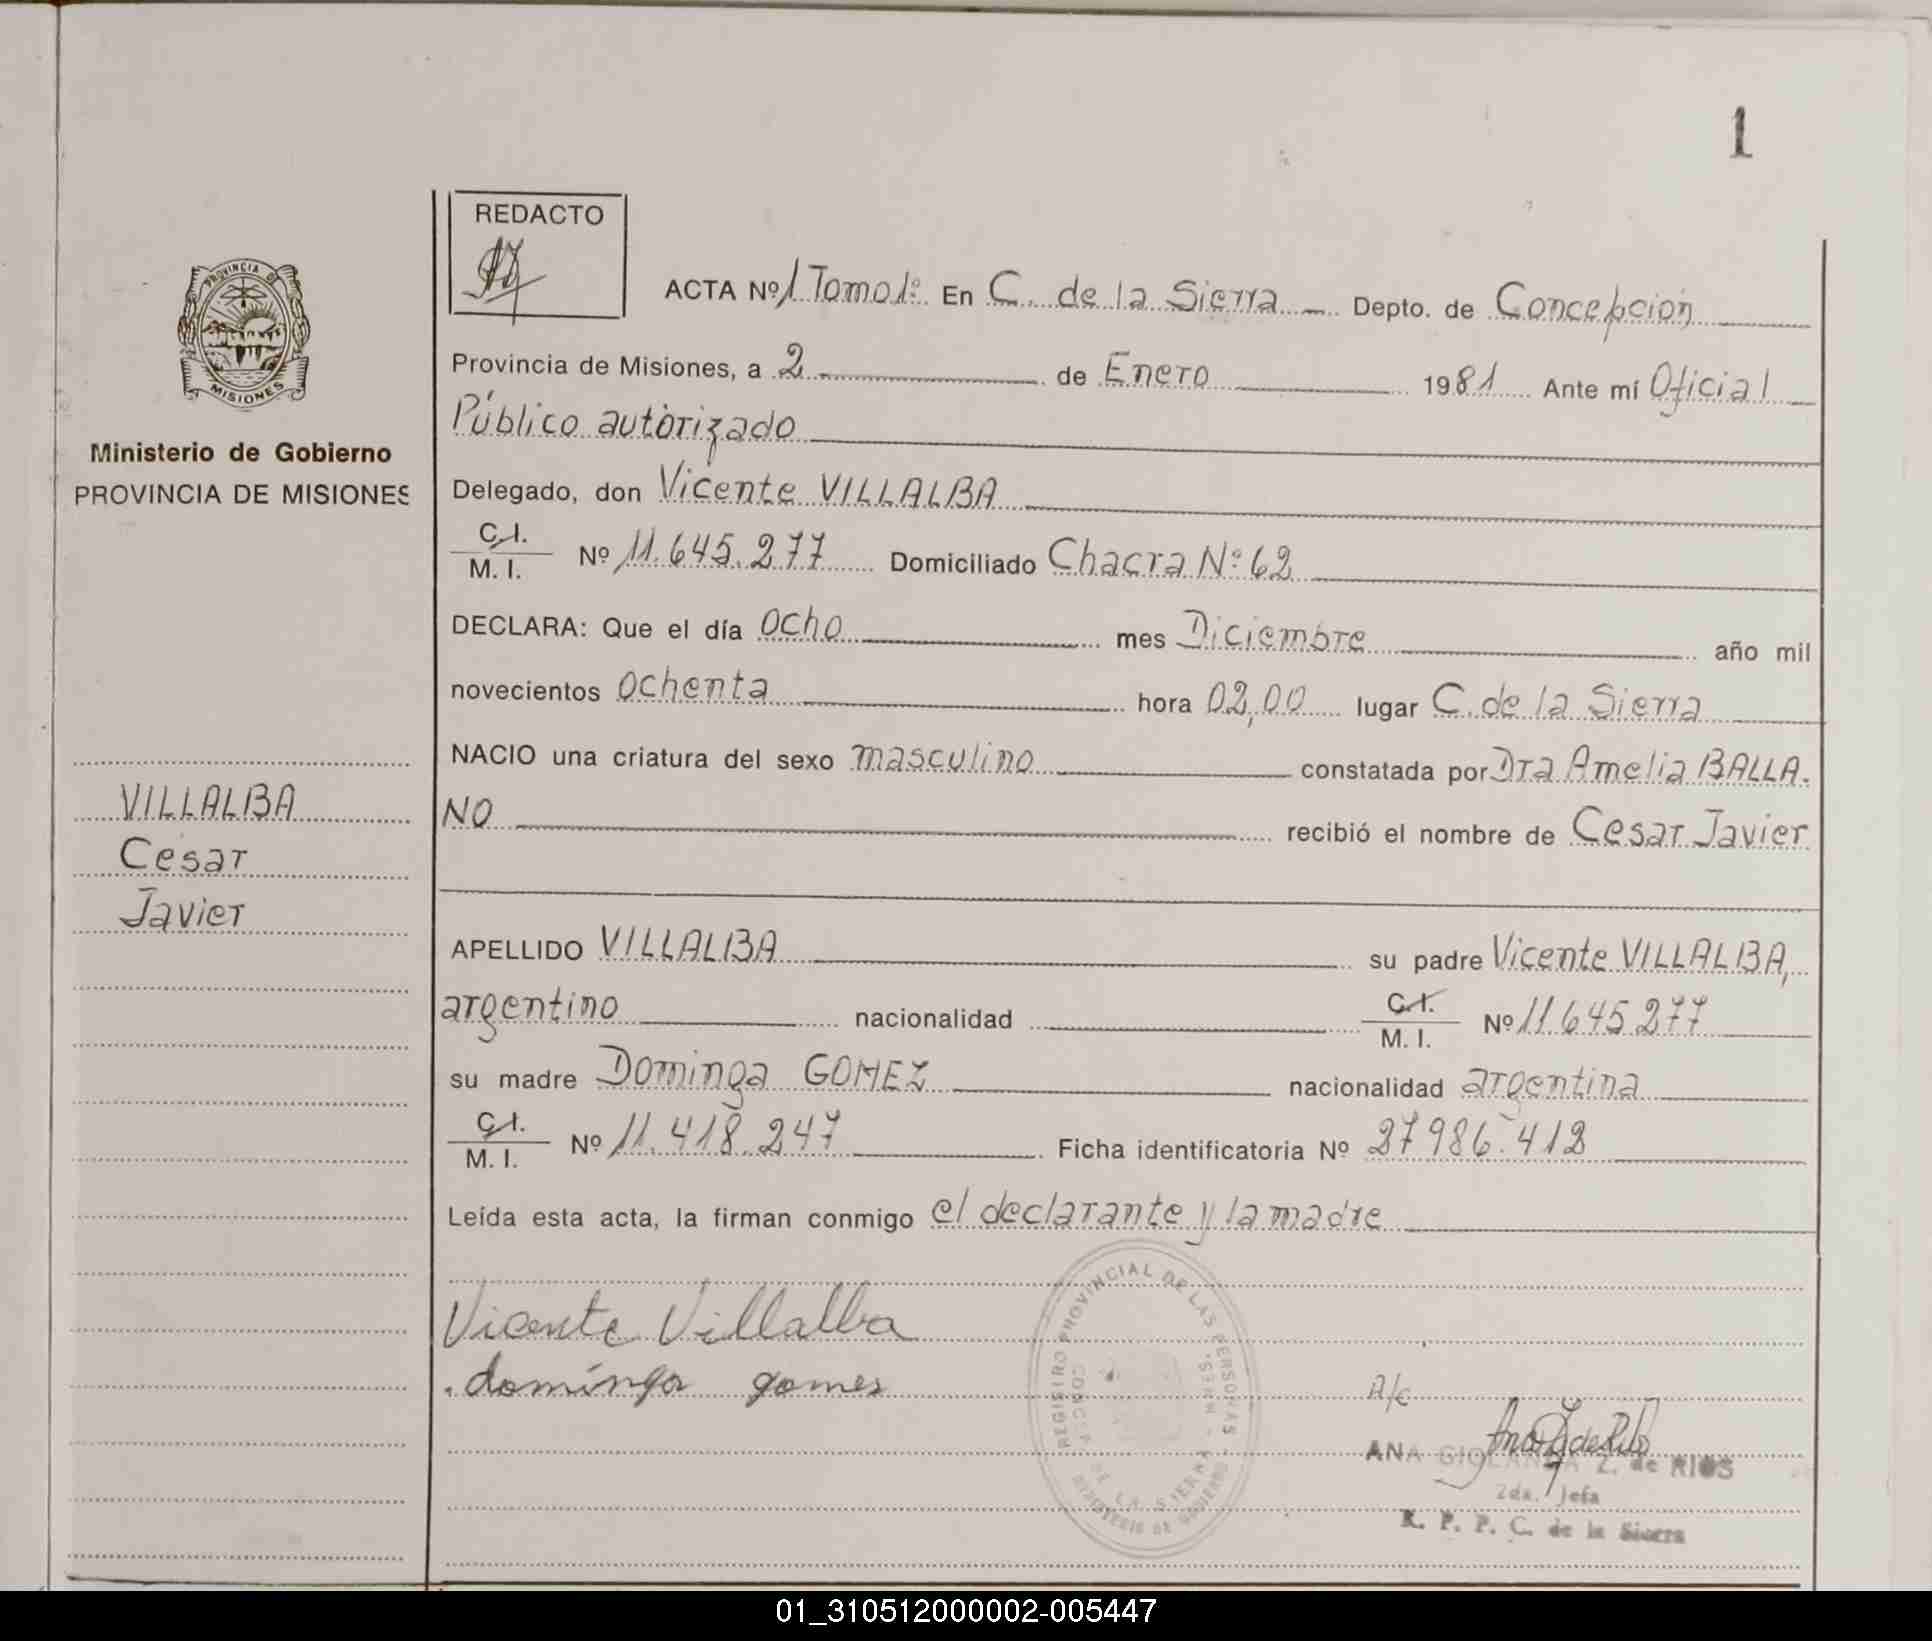 1
REDACTO
PROVINCIA DE
MISIONES
Ministerio de Gobierno
PROVINCIA DE MISIONES
VILLALBA
Cesar
Javier
ACTA Nº 1 Tomo 1º En C. de la Sierra Depto. de Concepción
Provincia de Misiones, a 2 de Enero 1981 Ante mí Oficial
Público autorizado
Delegado, don Vicente VILLALBA
C.I. / M. I. Nº 11.645.277 Domiciliado Chacra Nº 62
DECLARA: Que el día ocho mes Diciembre año mil
novecientos ochenta hora 02,00 lugar C. de la Sierra
NACIO una criatura del sexo masculino constatada por Dra Amelia BALLA.
NO recibió el nombre de Cesar Javier
APELLIDO VILLALBA su padre Vicente VILLALBA,
argentino nacionalidad C.I. / M. I. Nº 11.645.277
su madre Dominga GOMEZ nacionalidad argentina
C.I. / M. I. Nº 11.418.247 Ficha identificatoria Nº 27986.412
Leída esta acta, la firman conmigo el declarante y la madre
Vicente Villalba
dominga gomes
REGISTRO PROVINCIAL DE LAS PERSONAS
DE LA SIERRA - MNES.
MINISTERIO DE GOBIERNO
A/c
ANA Z. de RIOS
2da. Jefa
R. P. P. C. de la Sierra
01_310512000002-005447